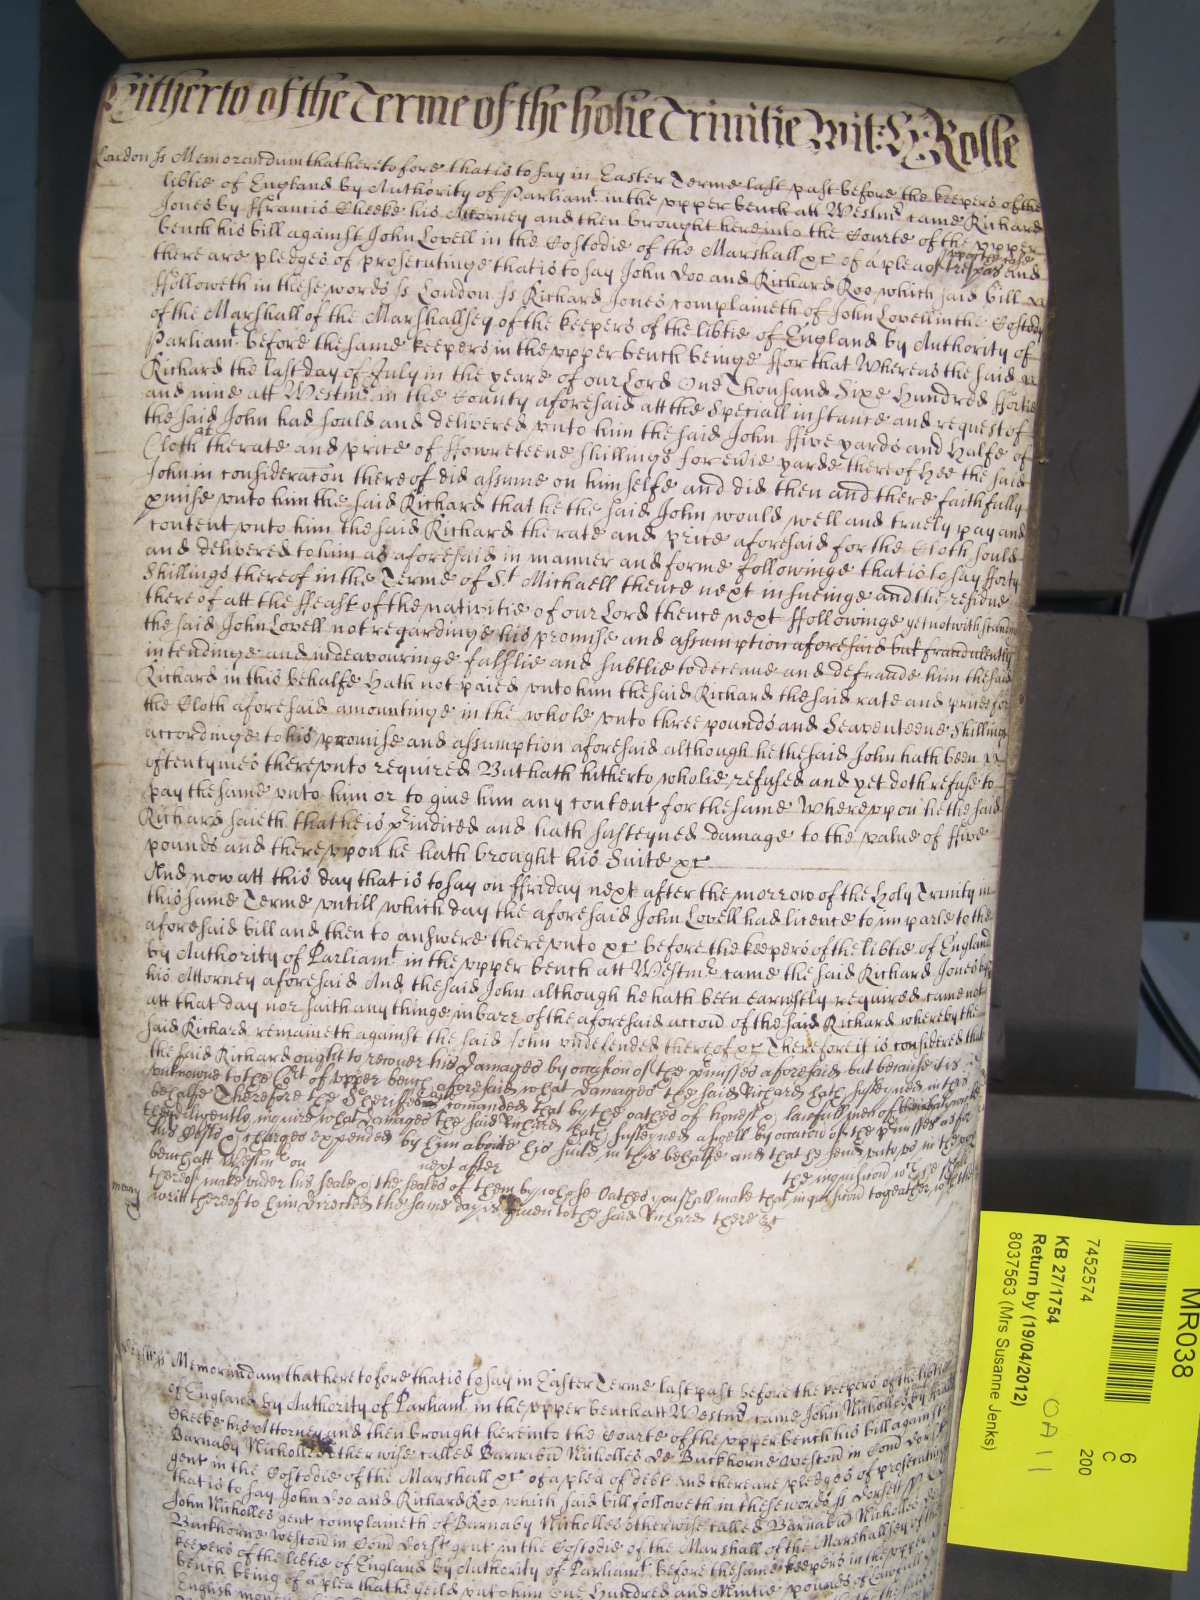 Hitherto of the Terme of the holie Trinitie Wit: H: Rolle
London ss Memorandum that heretofore that is to say in Easter Terme last past before the keepers of the
libtie of England by Authority of Parliamt. in the vpper bench att Westmr. came Richard
Jones by ffrancis Cheeke his Attorney and then brought here into the Courte of the vpper
bench his bill against John Lovell in the Costodie of the Marshall &c of a plea of trespas vpon the case and
there are pledges of prosecutinge that is to say John Doo and Richard Roo which said bill
ffolloweth in these words ss London ss Richard Jones complaineth of John Lovell in the Costody
of the Marshall of the Marshallsey of the keepers of the libtie of England by Authority of
Parliamt. before the same keepers in the vpper bench beinge ffor that Whereas the said
Richard the last day of July in the yeare of our Lord One Thousand Sixe Hundred ffortie
and nine att Westmr. in the County aforesaid att the Speciall instance and request of
the said John had sould and delivered vnto him the said John ffive yards and halfe of
Cloth att the rate and price of ffowreteene shillings for evie yarde thereof Hee the said
John in consideracon thereof did assume on himselfe and did then and there faithfully
pmise vnto him the said Richard that he the said John would well and truely pay and
content vnto him the said Richard the rate and price aforesaid for the Cloth sould
and delivered to him as aforesaid in manner and forme followinge that is to say fforty
Shillings thereof in the Terme of St Michaell thence next insueinge and the residue
thereof att the ffeast of the nativitie of our Lord thence next ffollowinge yet notwithstandin
the said John Lovell not regardinge his promise and assumption aforesaid but fraudulently
intendinge and indeavouringe falslie and subtlie to deceaue and defraude him the said
Richard in this behalfe Hath not paied vnto him the said Richard the said rate and price for
the Cloth aforesaid amountinge in the whole vnto three pounds and Seaventeene Shillings
accordinge to his promise and assumption aforesaid although he the said John hath been
oftentymes therevnto required But hath hitherto wholie refused and yet doth refuse to
pay the same vnto him or to give him any content for the same Wherevpon he the said
Richard saieth that he is preiudiced and hath susteyned damage to the value of ffive
pounds and therevpon he hath brought his Suite &c
And now att this day that is to say on ffriday next after the morrow of the Holy Trinity in
this same Terme vntill which day the aforesaid John Lovell had licence to imparle to the
aforesaid bill and then to answere therevnto &c before the keepers of the libtie of England
by Authority of Parliamt. in the vpper bench att Westmr. came the said Richard Jones by
his Attorney aforesaid And the said John although he hath been earnestly required came not
att that day nor saith any thinge in barr of the aforesaid accon of the said Richard whereby the
said Richard remaineth against the said John vndefended thereof &c Therefore it is considered that
the said Richard ought to recouer his damages by occasion of the pmisses aforesaid but because it is
vnknowne to the Cort of vpper bench aforesaid what damages the said Richard hath susteyned in this
behalfe Therefore the Sheriffes are comanded that by the oathes of honest & lawfull men of their baylywicke
they diligently inquire what damages the said Richard hath susteyned aswell by occasion of the pmisses as for
his Costs & charges expended by him aboute his suite in this behalfe and that he send vnto vs in the vpper
bench att Westmr on next after the inquisicon wch he shall
thereof make vnder his seale & the seales of them by whose Oathes you shall make that inquisicon togeather with the
writ thereof to him directed the same day is given to the said Richard there &c
Memorandum that heretofore that is to say in Easter Terme last past before the keepers of the libtie
of England by Authority of Parliamt. in the vpper bench att Westmr. came John Nicholles by ffrancis
Cheeke his Attorney and then brought here into the Courte of the vpper bench his bill against
Barnaby Nicholles otherwise called Barnaba Nicholles de Buckhorne Weston in Com Dorset
gent in the Costodie of the Marshall &c of a plea of debt And there are pledges of prosecutinge
that is to say John Doo and Richard Roo which said bill followeth in these words ss Dorsett ss
John Nicholles gent complaineth of Barnaby Nicholles otherwise called Barnaba Nicholles de
Buckhorne Weston in Com Dorset gent in the Costodie of the Marshall of the Marshallsey of the
keepers of the libtie of England by Authority of Parliamt. before the same keepers in the vpper
bench being of a plea that he yeild vnto him One Hundred and Nintie pounds of lawfull
English money
MR038
6
C
200
7452574
KB 27/1754
Return by (19/04/2012)
8037563 (Mrs Susanne Jenks)